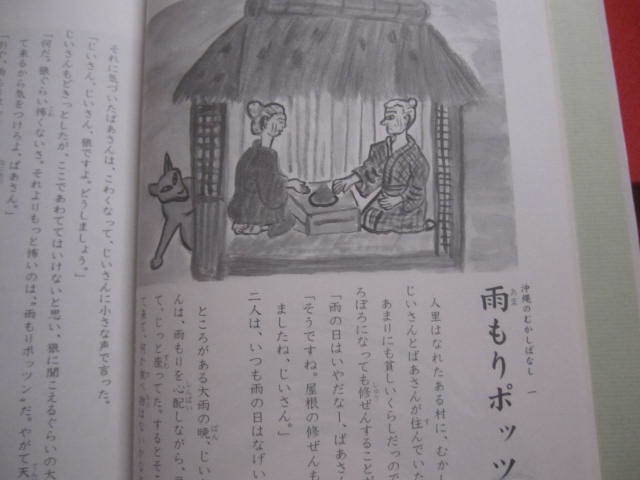 沖縄のむかしばなし 一
雨もりポッツ
あま
人里はなれたある村に、むかし
じいさんとばあさんが住んでいた
あまりにも貧しいくらしだっので
ろぼろになっても修ぜんすることが
「雨の日はいやだなー、ばあさん
「そうですね。屋根の修ぜんも
ましたね、じいさん。」
二人は、いつも雨の日はなげい
ところがある大雨の晩、じい
ばん
んは、雨もりを心配しながら、
しんぱい
て、じっと座ってた。するとそこ
それに気づいたばあさんは、こわくなって、じいさんに小さな声で言った。
「じいさん、じいさん、狼ですよ。どうしましょう。」
じいさんもどきっとしたが、ここであわててはいけないと思い、狼に聞こえるぐらいの大
「何だ。狼ぐらい怖くないさ。それよりもっと怖いのは、〝雨もりポッツン〟だ。やがて天
て来るから気をつけろよ。ばあさん。」